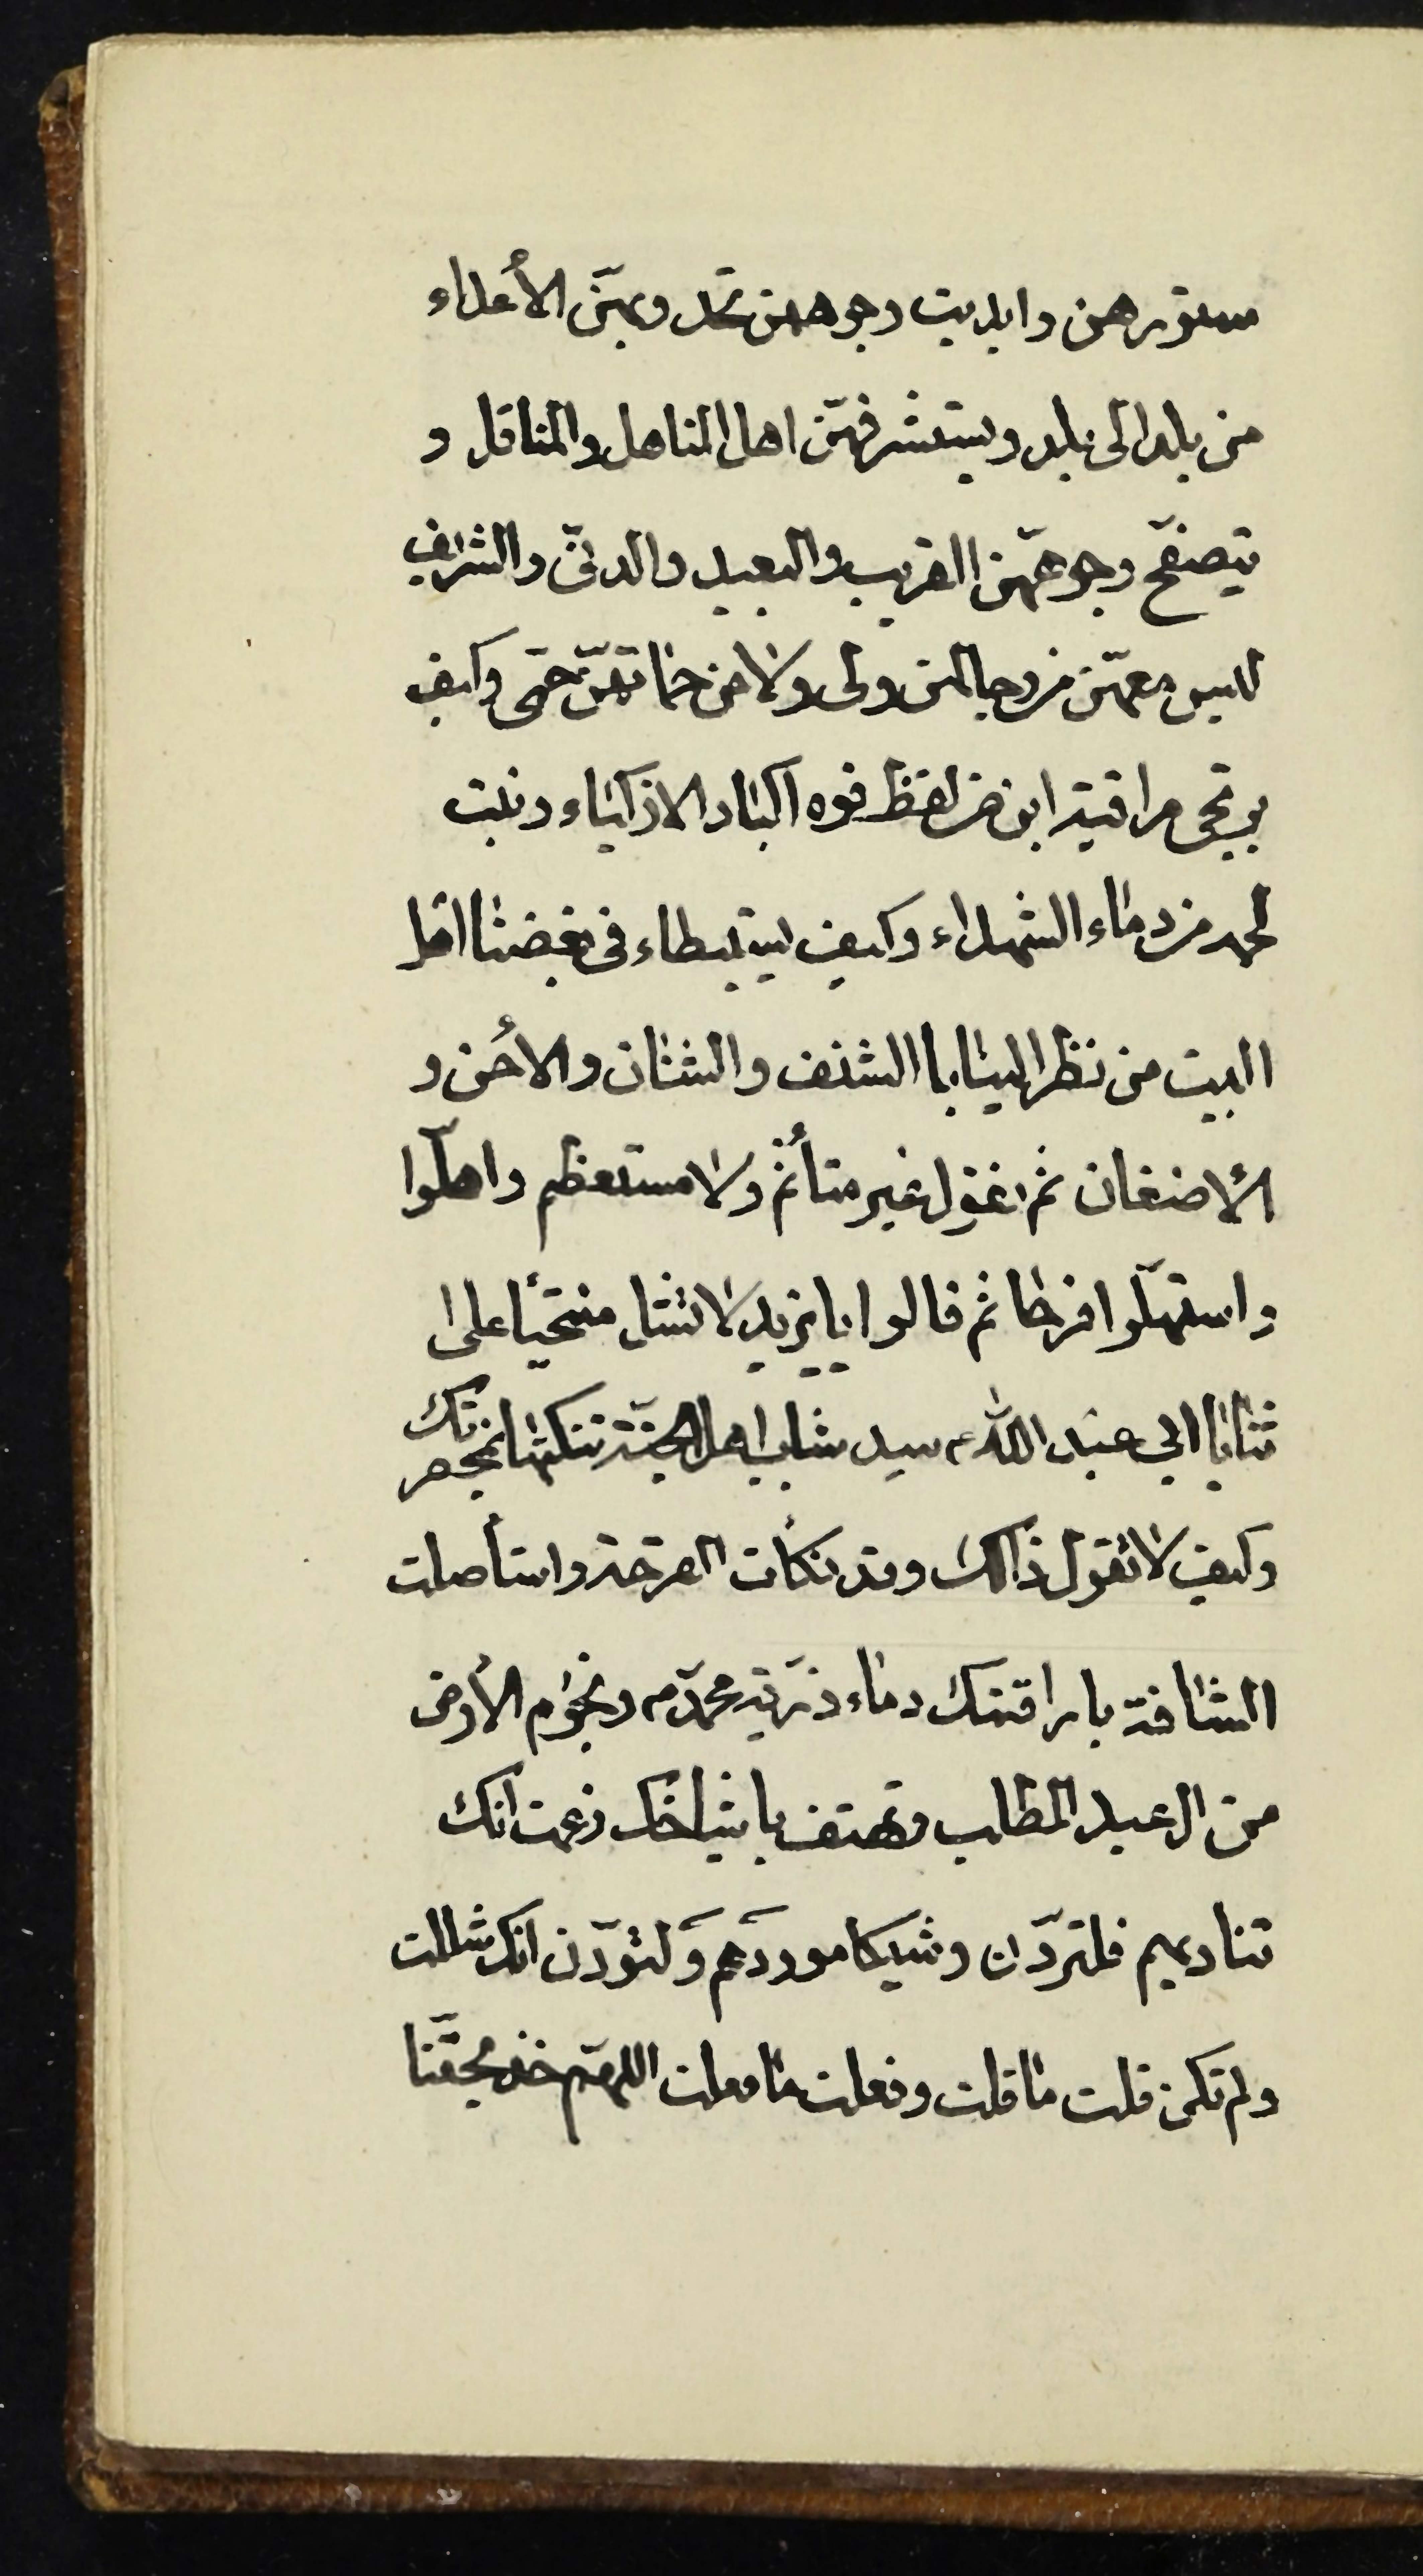 ستورهن وابديت وجوههن تحد وبهنّ الأعداء
من بلد الى بلد ويستشرفهنّ اهل المناهل والمناقل و
يتصفّح وجوههّن القريب والبعيد والدنّى والشريف
ليس معهّن من رجالهن ولى ولا من حماتهنّ حمّى وكيف
يرتجى مراقبة ابن من لفظ فوه اكباد الازكياء ونبت
لحمه من دماء الشهداء وكيف يستبطاء فى بغضنا اهل
البيت من نظر الينا باالشنف والشنان والأحن و
الأضغان ثم تقول غير متأثم ولا مستعظم واهلّوا
واستهلّوا فرحا ثم قالوا يا يزيد لا تشل منتحيأ على
ثنايا ابي عبد الله ؑ سيد شباب اهل الجنّة تنكتها بمخصرتك
وكيف لا تقول ذالك وقد نكأت القرحة واستأصلت
الشافة باراقتك دماء ذرّية محمدّ ص ونجوم الأرض
من ال عبد المطلب وتهتف باشياخك زعمت انك
تناديهم فلتردّن وشيكا موردهم ولتودّن انك شللت
ولم تكن قلت ما قلت وفعلت ما فعلت اللهمّ خذ بحقّنا